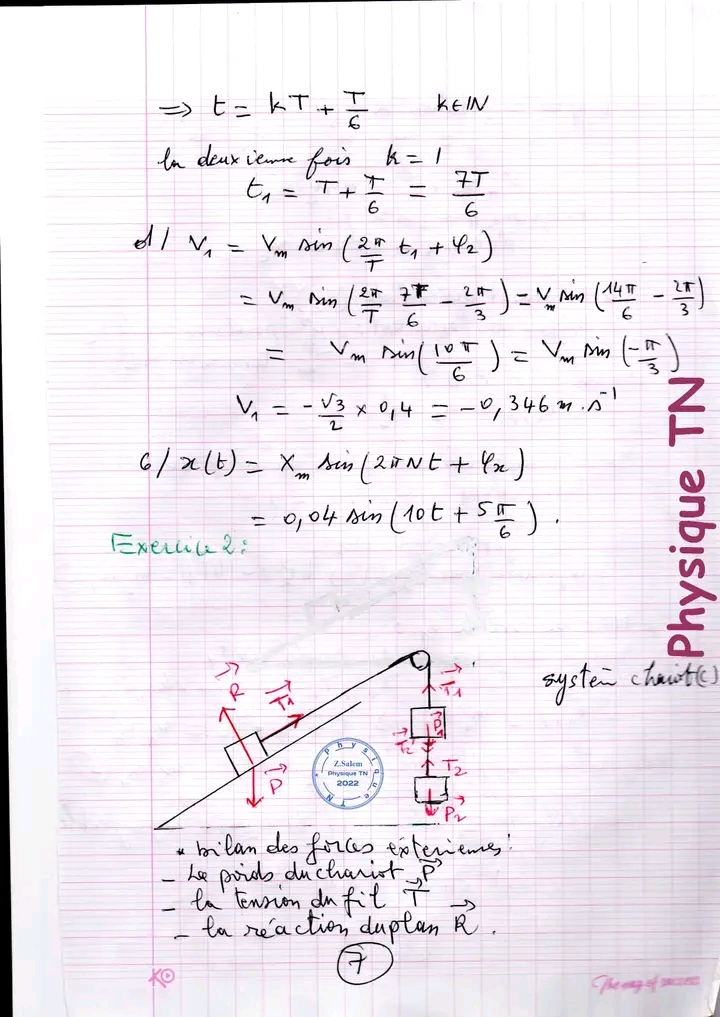 ⇒ t = kT + T/6 k∈IN
la deuxieme fois k = 1
t₁ = T + T/6 = 7T/6
d/ V₁ = Vm sin(2π/T t₁ + φ₂)
= Vm sin(2π/T 7T/6 - 2π/3) = Vm sin(14π/6 - 2π/3)
= Vm sin(10π/6) = Vm sin(-π/3)
V₁ = -√3/2 × 0,4 = -0,346 m.s⁻¹
6/ x(t) = Xm sin(2πNt + φx)
= 0,04 sin(10t + 5π/6).
Exercice 2:
Physique TN
systèm chariot(c)
R→ T₁→ T₁→
P₁→
T₂→ T₂
P→ P₂→
Physique TN
Z.Salem
Physique TN
2022
* bilan des forces exterieures:
- Le poids du chariot P→
- la tension du fil T→
- la réaction du plan R→.
7
K
The way of success